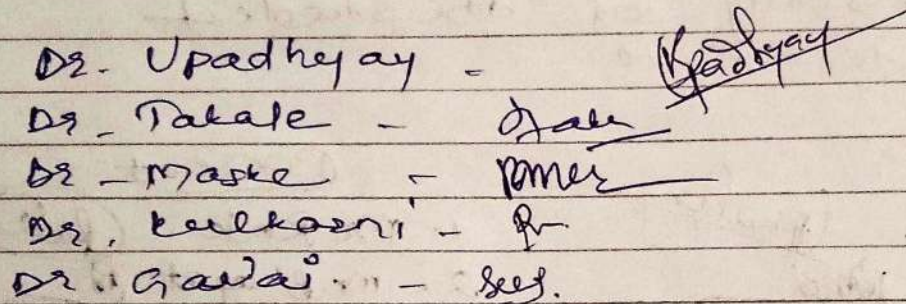 Dr. Upadhyay - Upadhyay
Dr. Takale -
Dr - Maske -
Dr. Kulkarni -
Dr. Gavai. -